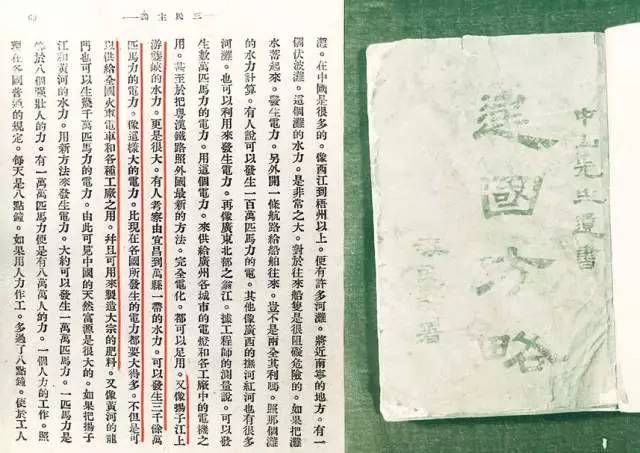 三民主義
69
灘。在中國是很多的。像西江到梧州以上。便有許多河灘。將近南寧的地方。有一
個伏波灘。這個灘的水力。是非常之大。對於往來船隻是很阻礙危險的。如果把灘
水蓄起來。發生電力。另外開一條航路給船舶往來。豈不是兩全其利嗎。照那個灘
的水力計算。有人說可以發生一百萬匹馬力的電。其他像廣西的撫河紅河也有很多
河灘。也可以利用來發生電力。再像廣東北部之翁江。據工程師的測量說。可以發
生數萬匹馬力的電力。用這個電力。來供給廣州各城市的電燈和各工廠中的電機之
用。甚至於把粵漢鐵路照外國最新的方法。完全電化。都可以足用。又像揚子江上
游夔峽的水力。更是很大。有人考察由宜昌到萬縣一帶的水力。可以發生三千餘萬
匹馬力的電力。像這樣大的電力。比現在各國所發生的電力都要大得多。不但是可
以供給全國火車電車和各種工廠之用。并且可用來製造大宗的肥料。又像黃河的龍
門也可以生幾千萬匹馬力的電力。由此可見中國的天然富源是很大的。如果把揚子
江和黃河的水力。用新方法來發生電力。大約可以發生一萬萬匹馬力。一匹馬力是
等於八個強壯人的力。有一萬萬匹馬力便是有八萬萬人的力。一個人力的工作。照
現在各國普通的規定。每天是八點鐘。如果用人力作工。多過了八點鐘。便於工人
中山先生遺書
建國方略
署